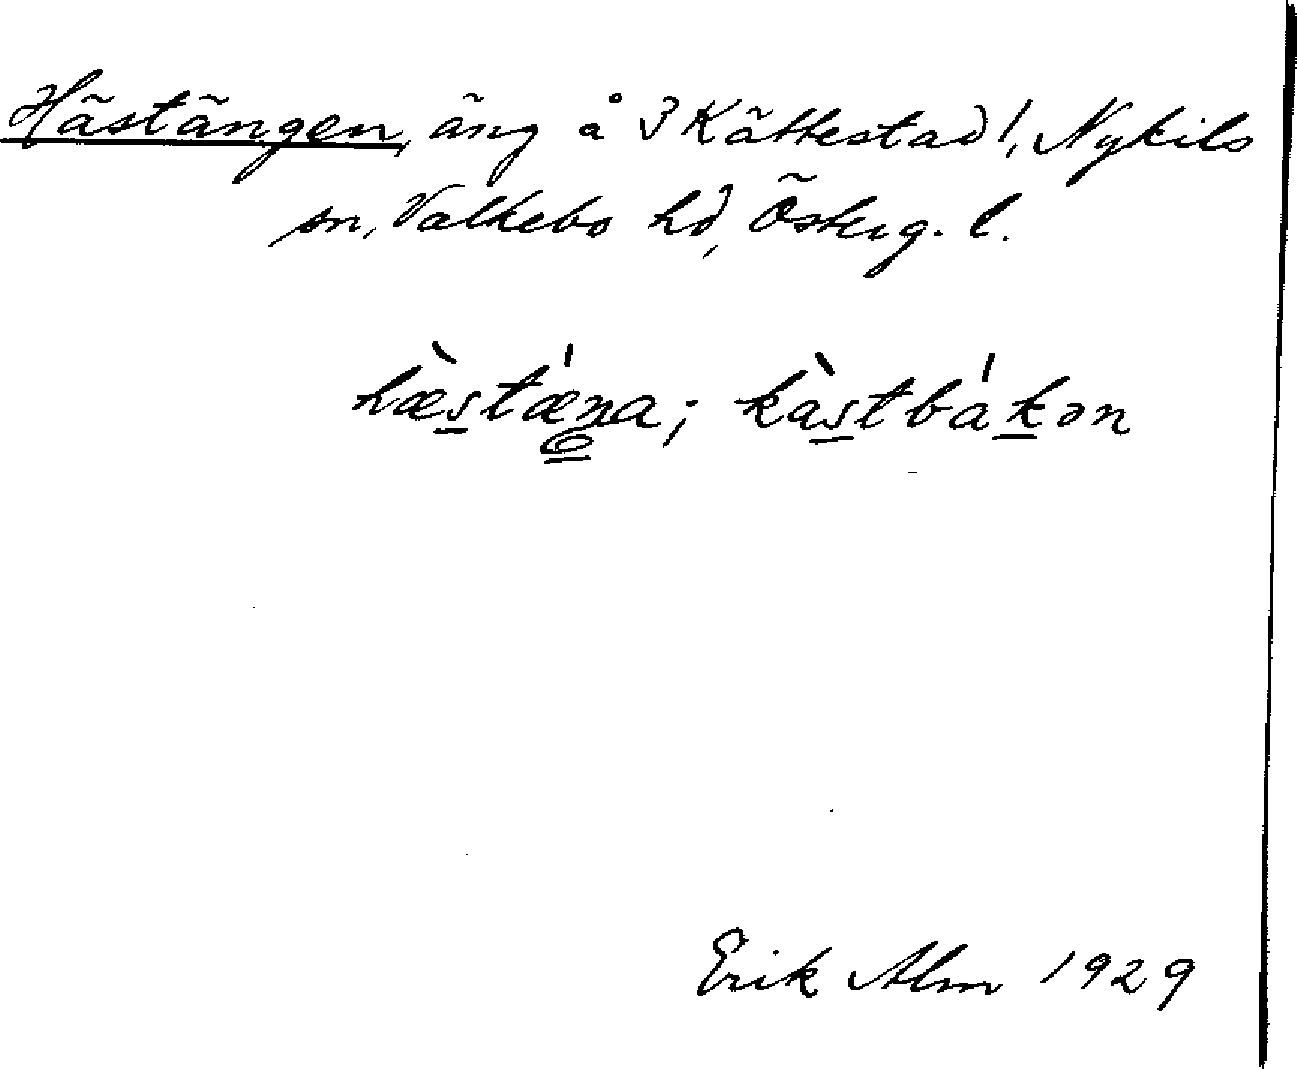 Hästängen, äng å 3 Kättestad!, Nykils
sn, Valkebo hd, Österg. l.
hæ̀stǽŋa; kàstbákən
Erik Alm 1929